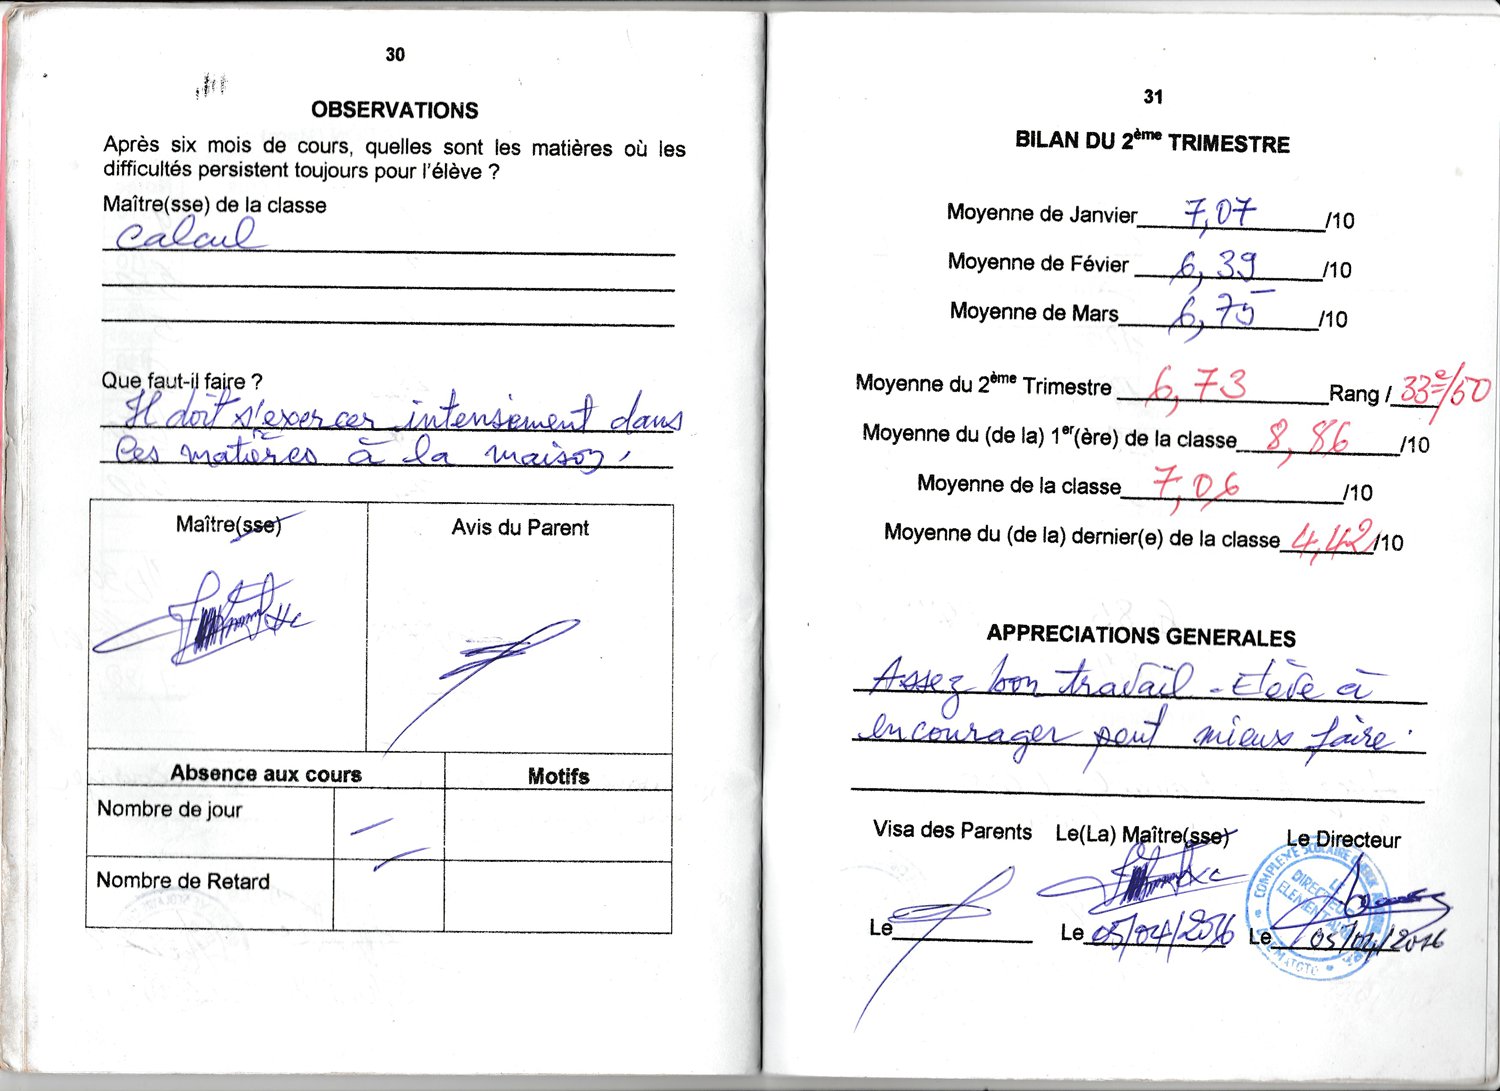 30
OBSERVATIONS
Après six mois de cours, quelles sont les matières où les
difficultés persistent toujours pour l'élève ?
Maître(sse) de la classe
Calcul
Que faut-il faire ?
Il doit s'exercer intensement dans
ces matières à la maison.
Maître(sse)
Avis du Parent
Absence aux cours
Motifs
Nombre de jour
Nombre de Retard
31
BILAN DU 2ème TRIMESTRE
Moyenne de Janvier 7,07 /10
Moyenne de Févier 6,39 /10
Moyenne de Mars 6,75 /10
Moyenne du 2ème Trimestre 6,73 Rang / 33e/50
Moyenne du (de la) 1er(ère) de la classe 8,86 /10
Moyenne de la classe 7,06 /10
Moyenne du (de la) dernier(e) de la classe 4,42 /10
APPRECIATIONS GENERALES
Assez bon travail - Elève à
encourager peut mieux faire.
Visa des Parents Le(La) Maître(sse) Le Directeur
COMPLEXE SCOLAIRE
LE
Le Le 05/04/2016 Le 05/04/2016